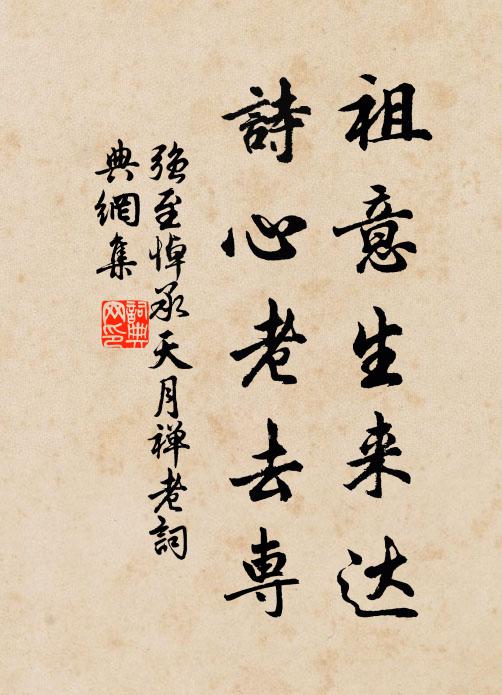 祖意生来达
詩心老去専
强至悼承天月禅老詞
典網集
詞典网印